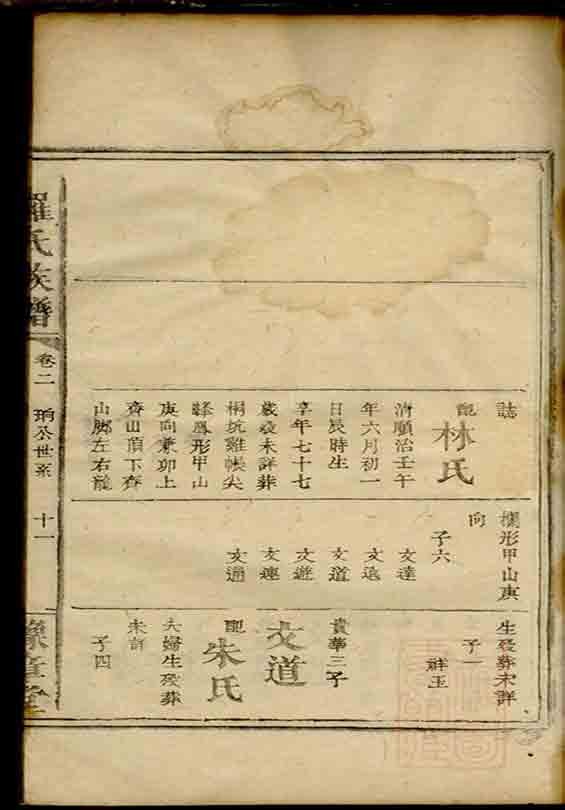 誌
配林氏
清順治壬午
年六月初一
日辰時生
享年七十七
歲歿未詳葬
桐坑雞帳尖
甲山
庚向兼卯上
齊山頂下齊
山腳左右龍
欄形甲山庚
向
子六
文達
文逵
文道
文遊
文連
文通
生歿葬未詳
子一
祥玉
貴華三子
文道
配朱氏
夫婦生歿葬
未詳
子四
羅氏族譜
卷二
公世系
十一
豫章堂